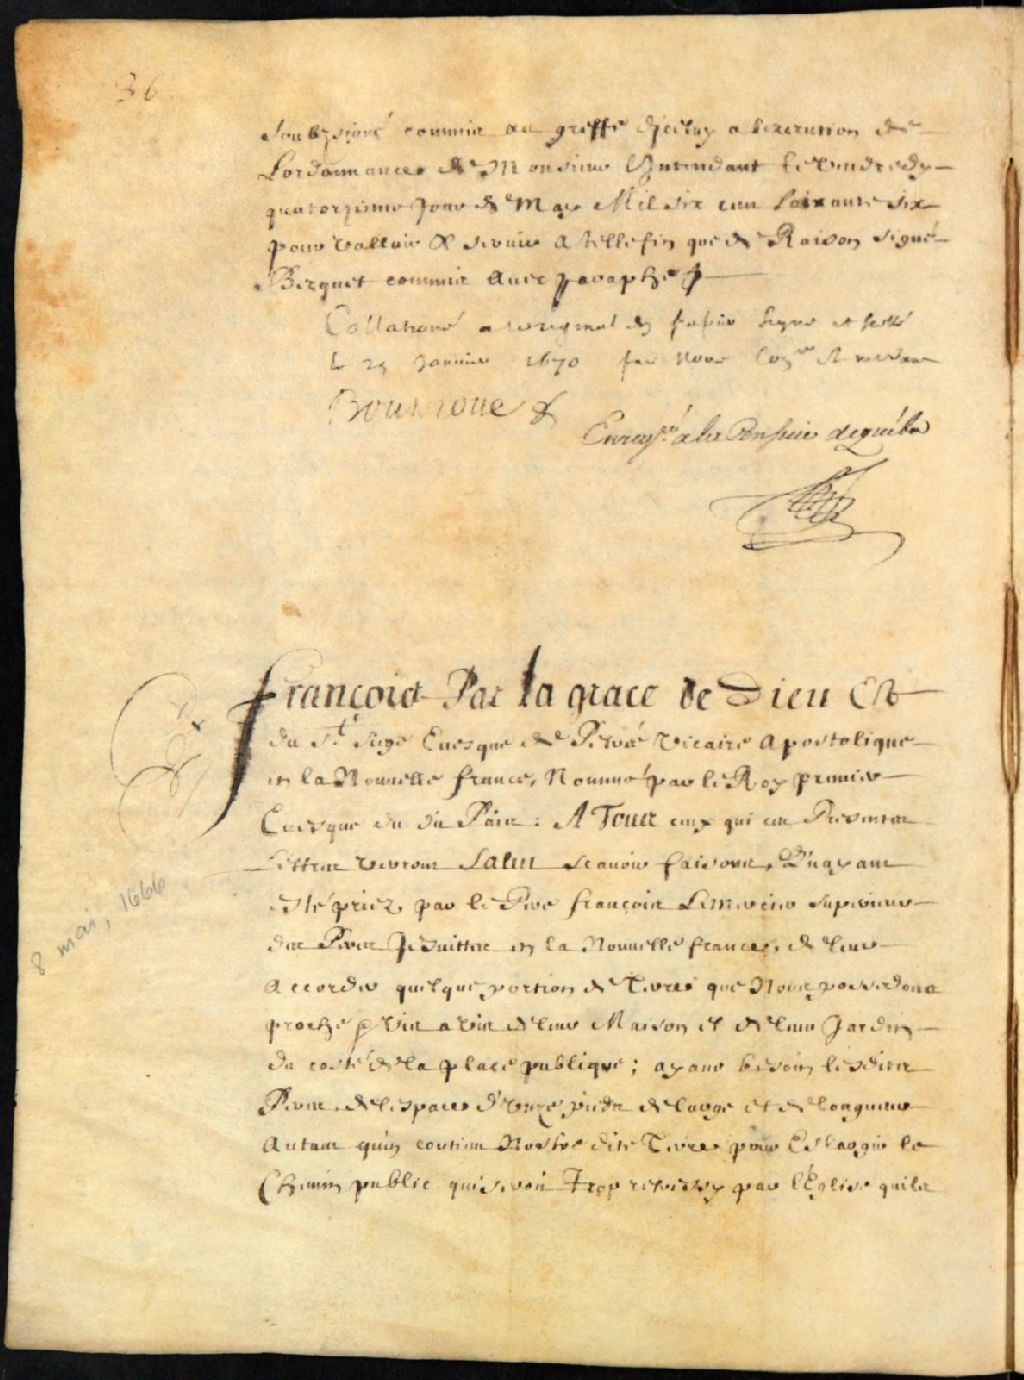 36
Soubzsigné commis au greffe d'jceluy a l'execution de
L'ordonnance de Monsieur L'Jntendant le Vendredy
quatorziesme Jour de May Mil six cens soixante six
pour valloir & servir a telle fin que de Raison signé
Becquet commis avec paraphe
Collationé a l'original en papier signé et scellé
le 25 Janvier 1670 par Nous
Enreg.ré a la
François Par la grace de Dieu Et
du St. Siege Evesque de Petrée Vicaire Apostolique
en la Nouvelle france, Nommé par le Roy premier
Evesque du dit Païs : A Tous ceux qui ces Presentes
Lettres verront Salut scavoir faisons, Qu'ayans
esté priez par le Pere françois Lemercier Superieur
des Peres Jesuittes en la Nouvelle france, de leur
Accorder quelque portion de Terre que Nous possedons
proche & vis a vis de leur Maison et de leur Jardin
du costé de la place publique ; ayans besoin lesdits
Peres de l'espace d'Unze pieds de large et de longueur
Autant qu'en contient Nostre dite Terre pour Eslargir le
Chemin public qui seroit Trop retressy par l'Eglise qu'ils
8 mai, 1666